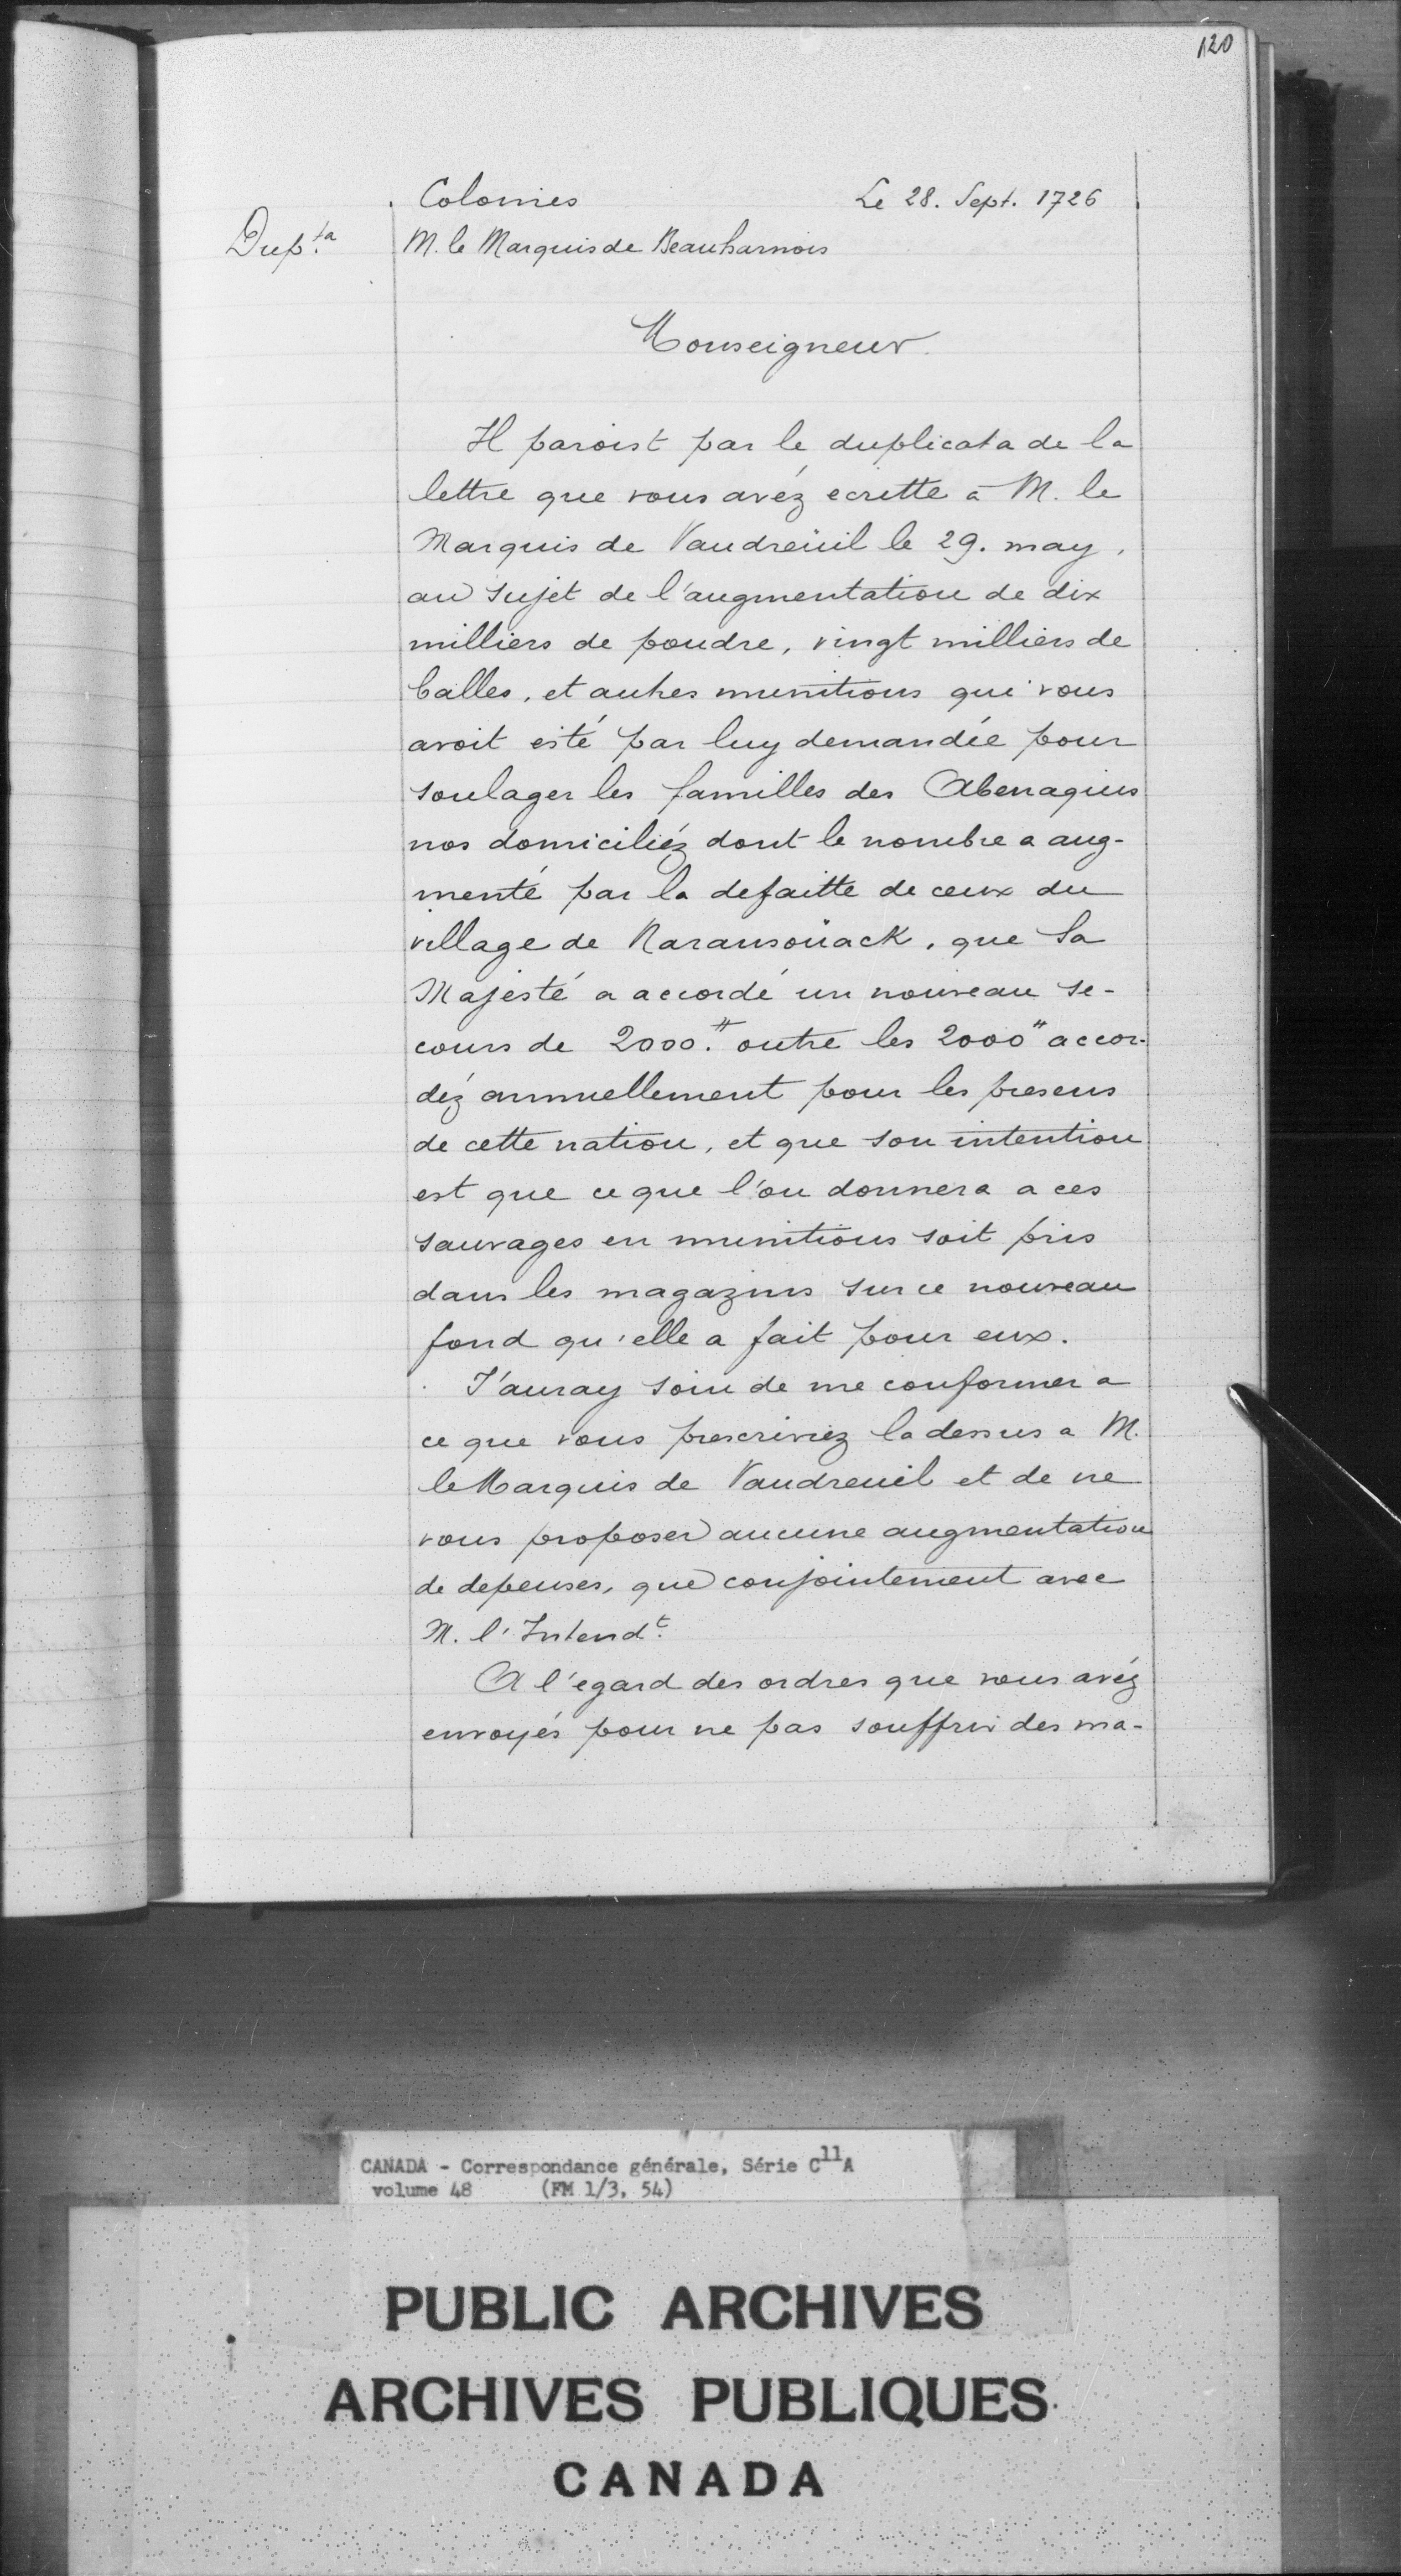 120
Colonies Le 28. Sept. 1726
Dup.ta M. le Marquis de Beauharnois
Monseigneur
Il paroist par le duplicata de la
lettre que vous avéz ecritte à M. le
Marquis de Vaudreüil le 29. may,
au sujet de l'augmentation de dix
milliers de poudre, vingt milliers de
balles, et autres munitions qui vous
avoit esté par luy demandée pour
soulager les familles des Abenaquis
nos domiciliéz dont le nombre a aug-
menté par la defaitte de ceux du
village de Naransoüack, que Sa
Majesté a accordé un nouveau se-
cours de 2000.# outre les 2000# accor-
déz annuellement pour les presens
de cette nation, et que son intention
est que ce que l'on donnera a ces
sauvages en munitions soit pris
dans les magazins sur ce nouveau
fond qu'elle a fait pour eux.
J'auray soin de me conformer a
ce que vous prescriviez la dessus a M.
le Marquis de Vaudreuil et de ne
vous proposer aucune augmentation
de depenses, que conjointement avec
M. l'Intend.t
A l'egard des ordres que vous avéz
envoyés pour ne pas souffrir des ma-
CANADA - Correspondance générale, Série C11A
volume 48 (FM 1/3, 54)
PUBLIC ARCHIVES
ARCHIVES PUBLIQUES
CANADA